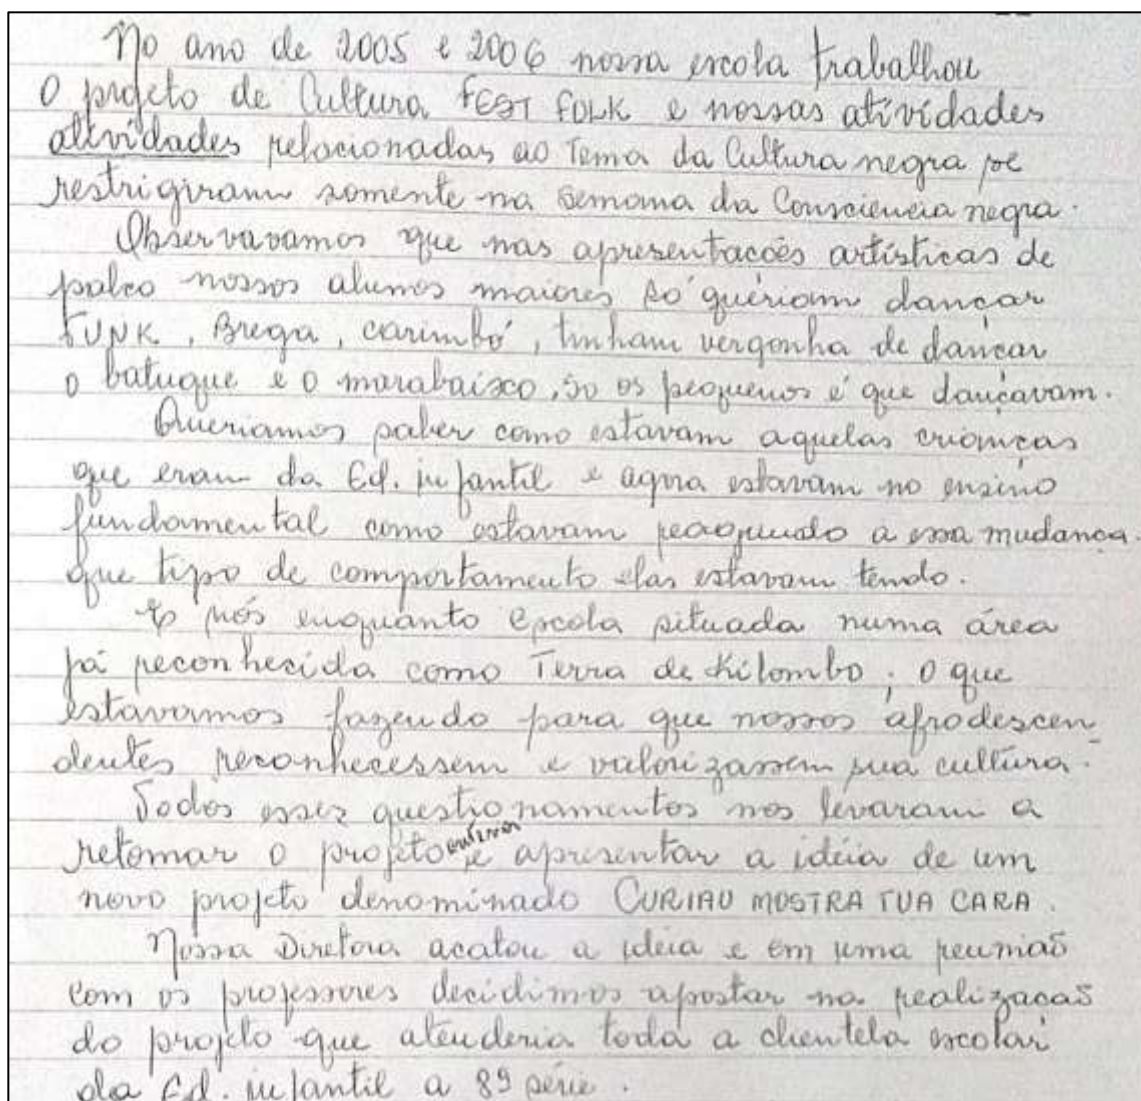 No ano de 2005 e 2006 nossa escola trabalhou
O projeto de Cultura FEST FOLK e nossas atividades
atividades relacionadas ao Tema da Cultura negra se
restrigiram somente na semana da Consciencia negra.
Observavamos que nas apresentacões artísticas de
palco nossos alunos maiores só queriam dançar
FUNK, Brega, carimbó, tinham vergonha de dançar
o batuque e o marabaixo, so os pequenos é que dançavam.
Queriamos saber como estavam aquelas crianças
que eram da Ed. infantil e agora estavam no ensino
fundamental como estavam reagindo a essa mudança.
que tipo de comportamento elas estavam tendo.
E nós enquanto Escola situada numa área
já reconhecida como Terra de Kilombo; o que
estavamos fazendo para que nossos afrodescen-
dentes reconhecessem e valorizassem sua cultura.
Todos esses questionamentos nos levaram a
retomar o projeto e apresentar a idéia de um
novo projeto denominado CURIAU MOSTRA TUA CARA.
Nossa Diretora acatou a idéia e em uma reunião
com os professores decidimos apostar na realização
do projeto que atenderia toda a clientela escolar
da Ed. infantil a 8ª série.